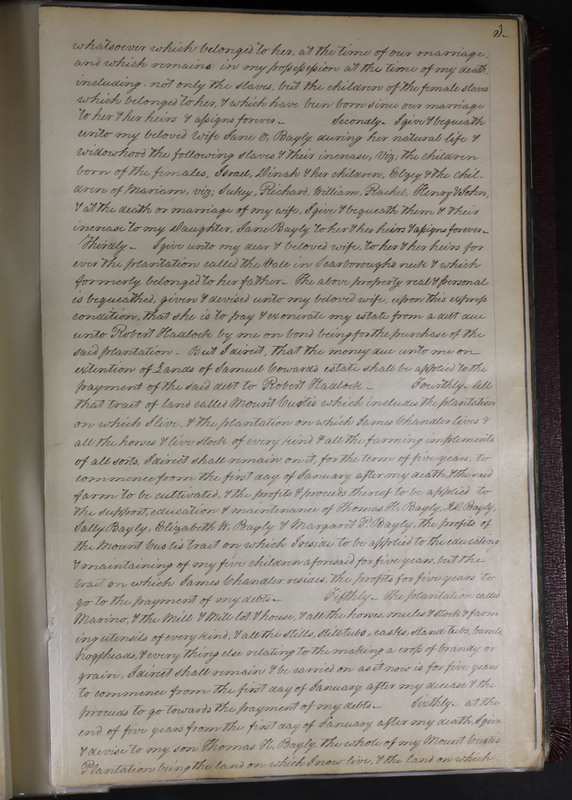 2
whatsoever which belonged to her, at the time of our marriage,
and which remains in my possession at the time of my death,
including, not only the slaves, but the children of the female slaves
which belonged to her, & which have been born since our marriage
to her & her heirs & assigns forever. Secondly. I give & bequeath
unto my beloved Wife Jane O. Bayly during her natural life &
widowhood the following slaves & their increase, Viz; the children
born of the females, Israel, Dinah & her children, Elzey & the chil-
dren of Mariam, viz; Sukey, Richard, William, Rachel, Henry & John,
& at the death or marriage of my wife, I give & bequeath them & their
increase to my Daughter, Jane Bayly to her & her heirs & assigns forever.
Thirdly. I give unto my dear & beloved wife, to her & her heirs for
ever the plantation called the Vale in Scarboroughs neck & which
formerly belonged to her father. The above property real & personal
is bequeathed, given & devised unto my beloved wife, upon this express
condition, that she is to pay & exonerate my estate from a debt due
unto Robert Hadlock by me on bond being for the purchase of the
said plantation. But I direct, that the money due unto me on
extention of Lands of Samuel Cowards estate shall be applied to the
payment of the said debt to Robert Hadlock. Fourthly. All
that trait of land called Mount Custis which includes the plantation
on which I live, & the plantation on which James Chandler lives &
all the horses & live stock of every kind & all the farming implements
of all sorts, I direct shall remain on it, for the term of five years, to
commence from the first day of January after my death, & the said
farm to be cultivated, & the profits & proceeds thereof to be applied to
the support, education & maintenance of Thomas H. Bayly, Bayly,
Sally Bayly, Elizabeth W. Bayly & Margaret P. Bayly, the profits of
the Mount Custis trait on which I reside to be applied to the educating
& maintaining of my five children aforesaid for five years, but the
trait on which James Chandler resides, the profits for five years to
go to the payment of my debts. Fifthly. The plantation called
Marino, & the Mill & Mill lot & house, & all the horses, mules & stock & farm
ing utensils of every kind, & all the stills, still tubs, casks, stand tubs,
hogsheads, & every thing else relating to the making a crop of brandy or
grain, I direct shall remain & be carried on as it now is for five years
to commence from the first day of January after my decease & the
proceeds to go towards the payment of my debts. Sixthly. at the
end of five years from the first day of January after my death, I give
& devise to my son Thomas H. Bayly, the whole of my Mount Custis
Plantation being the land on which I now live, & the land on which